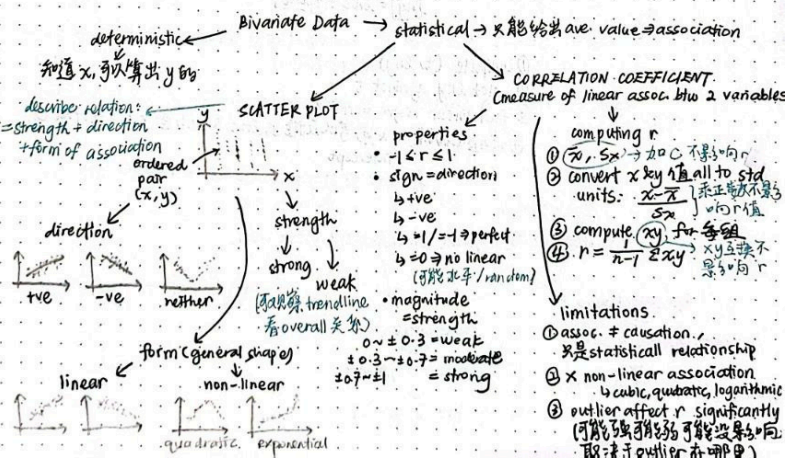 Bivariate Data → statistical → 只能给出ave. value ⇒ association
deterministic
知道x,可以算出y的
describe relation:
=strength + direction
+form of association
SCATTER PLOT
y
x
ordered
pair
(x,y)
direction
+ve
-ve
neither
strength
strong
weak
(可观察trendline
看overall关系)
form (general shape)
linear
non-linear
quadratic
exponential
CORRELATION COEFFICIENT
(measure of linear assoc. btw 2 variables
properties
• -1≤r≤1
• sign=direction
↳+ve
↳-ve
↳=1/=-1⇒perfect
↳=0⇒no linear
(可能水平/random)
• magnitude
=strength
0~±0.3=weak
±0.3~±0.7=moderate
±0.7~±1 =strong
computing r
① x̄, Sx → 加C不影响r
② convert x & y 值 all to std
units. (x-x̄)/Sx 乘正常数不影
响r值
③ compute xy for 每组
④ r = 1/(n-1) Σxy xy互换不
影响r
limitations
① assoc. ≠ causation,
只是statisticall relationship
② × non-linear association
↳cubic, quadratic, logarithmic
③ outlier affect r significantly
(可能强可能弱可能没影响
取决于outlier在哪里)